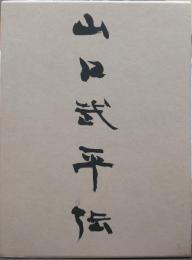 山口武平伝